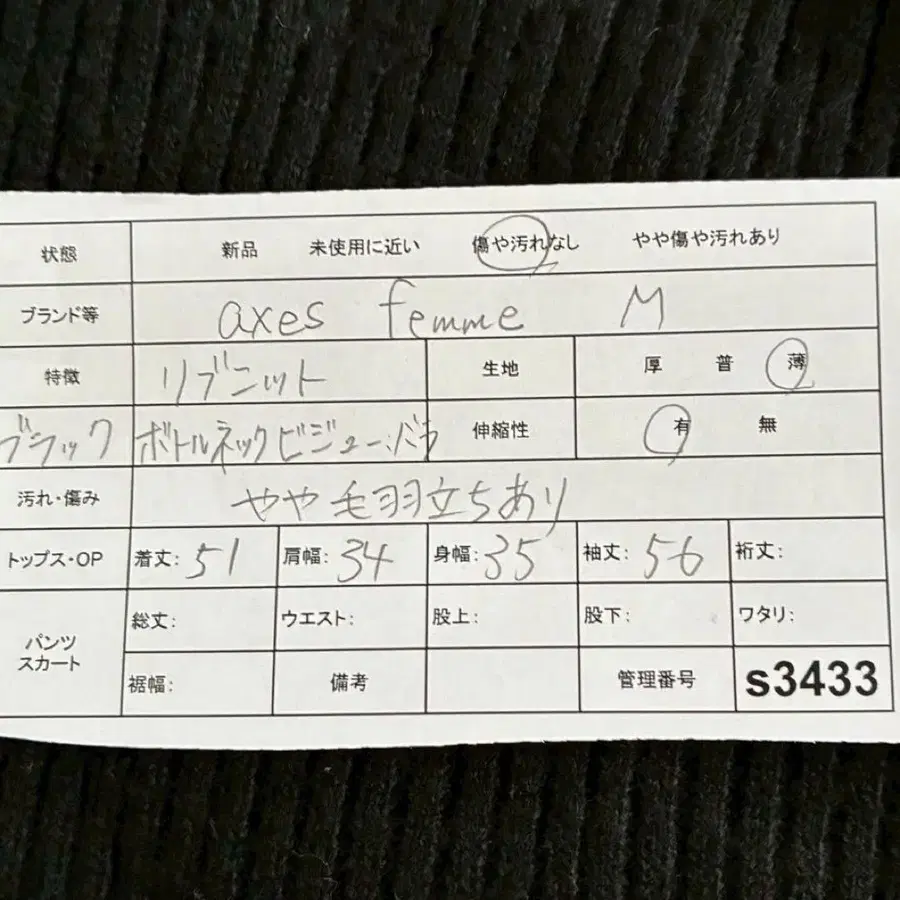 状態 新品 未使用に近い 傷や汚れなし やや傷や汚れあり
ブランド等 axes femme M
特徴 リブニット 生地 厚 普 薄
ブラック ボトルネックビジュー、バラ 伸縮性 有 無
汚れ・傷み やや毛羽立ちあり
トップス・OP 着丈: 51 肩幅: 34 身幅: 35 袖丈: 56 裄丈:
パンツ スカート 総丈: ウエスト: 股上: 股下: ワタリ:
裾幅: 備考 管理番号 s3433